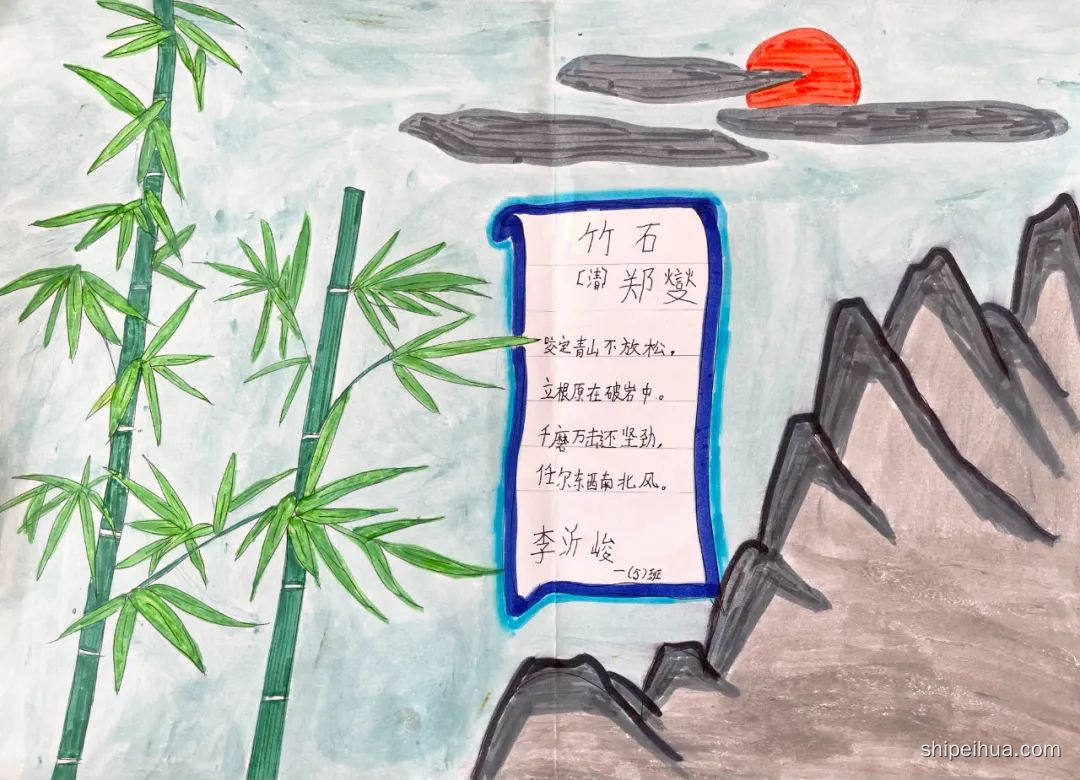 竹石
[清]郑燮
咬定青山不放松，
立根原在破岩中。
千磨万击还坚劲，
任尔东西南北风。
李沂峻
一(5)班
shipeihua.com